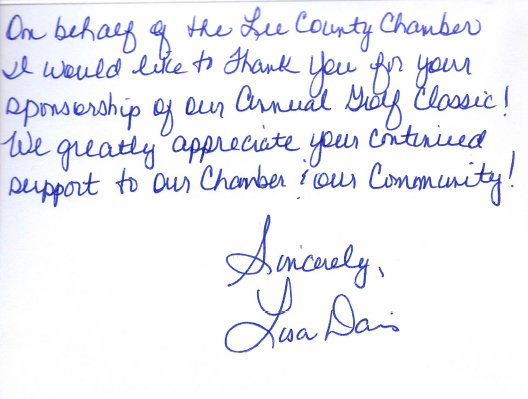 On behalf of the Lee County Chamber
I would like to Thank you for your
sponsorship of our Annual Golf Classic!
We greatly appreciate your continued
support to our Chamber & our Community!
Sincerely,
Lisa Davis